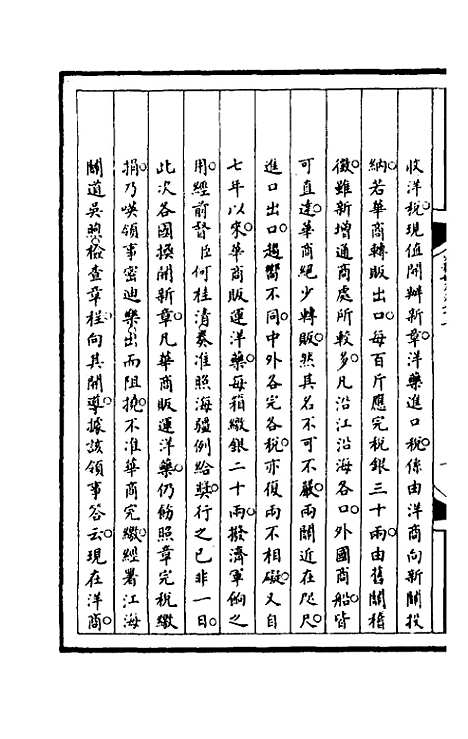 收洋稅。現值開辦新章。洋藥進口稅。係由洋商向新關投
納。若華商轉販出口。每百斤應完稅銀三十兩。由舊關稽
徵。雖新增通商處所較多。凡沿江沿海各口。外國商船皆
可直達。華商絕少轉販。然其名不可不嚴。兩關近在咫尺。
進口出口。趨嚮不同。中外各完各稅。亦復兩不相礙。又自
七年以來。華商販運洋藥。每箱繳銀二十兩。撥濟軍餉之
用。經前督臣何桂清奏准照海疆例給獎。行之已非一日。
此次各國換開新章。凡華商販運洋藥。仍飭照章完稅繳
捐。乃嘆領事密迪樂。出而阻撓。不准華商完繳。經署江海
關道吳煦。檢查章程。向其開導。據該領事答云。現在洋商。